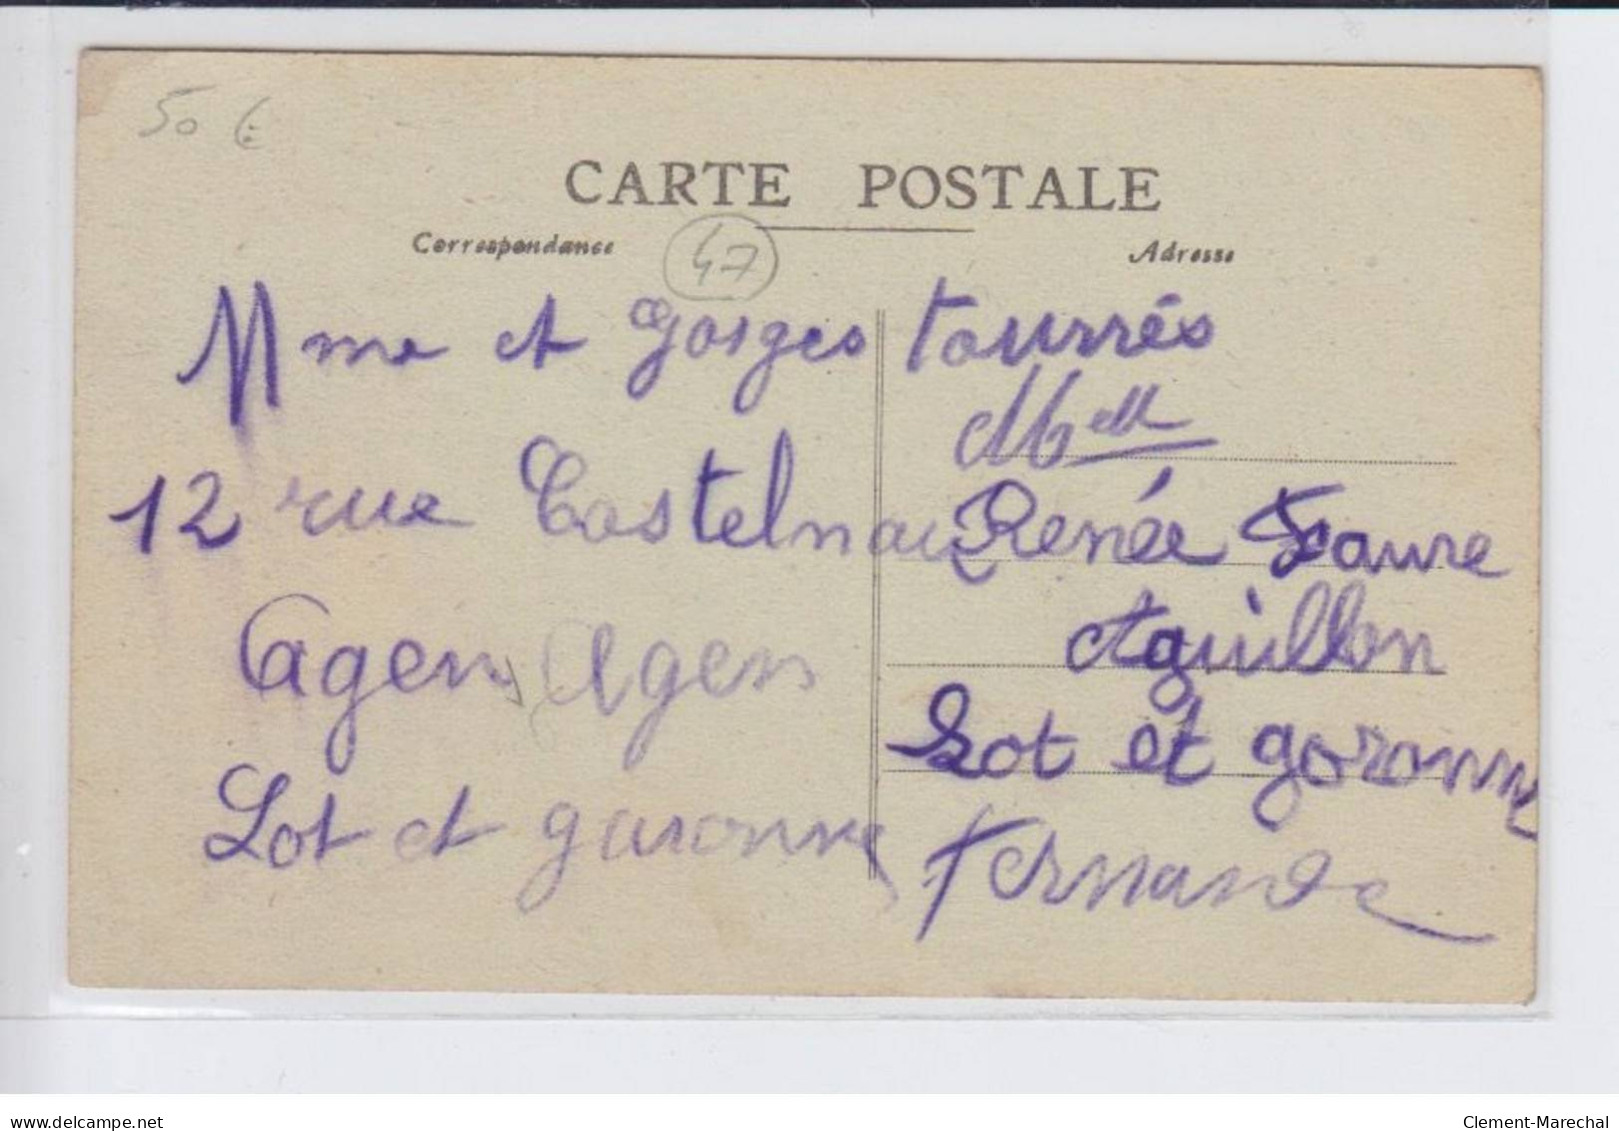 50 €
CARTE POSTALE
Correspondance
47
Adresse
Mme et gorges tourrés
12 rue Castelnau
Agen Agen
Lot et garonne
Melle
Renée Faure
Aguillon
Lot et goronne
Fernande
delcampe.net
Clement-Marechal